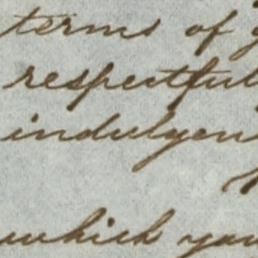 terms of
respectful
indulgen
which you